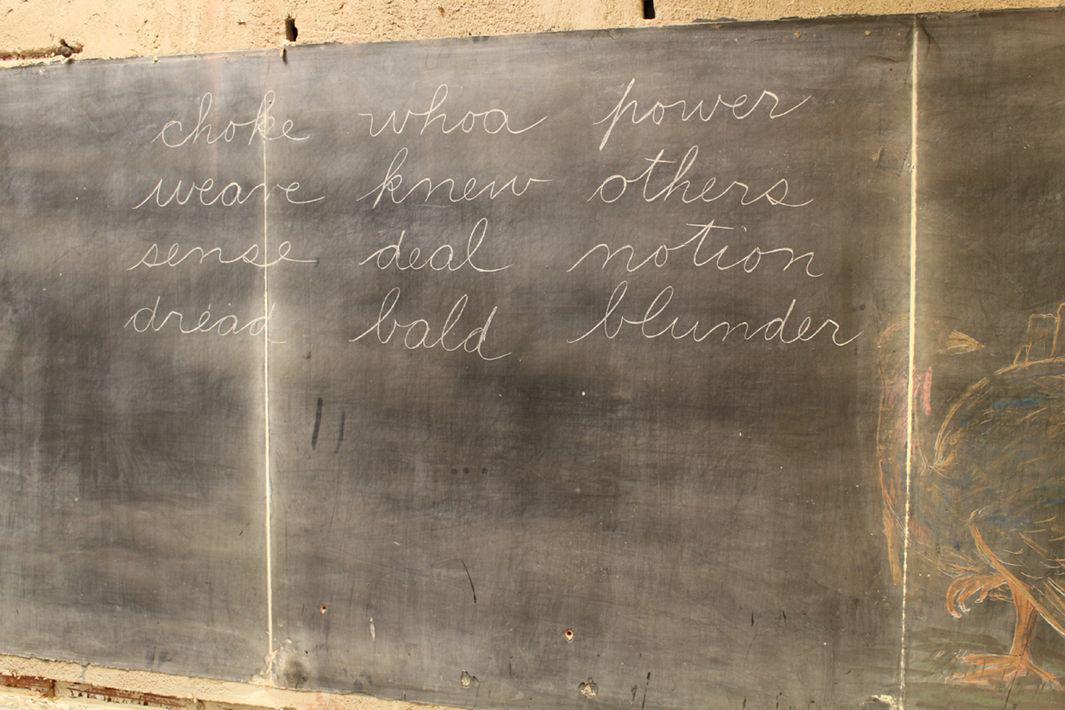 choke whoa power
weave knew others
sense deal notion
dread bald blunder